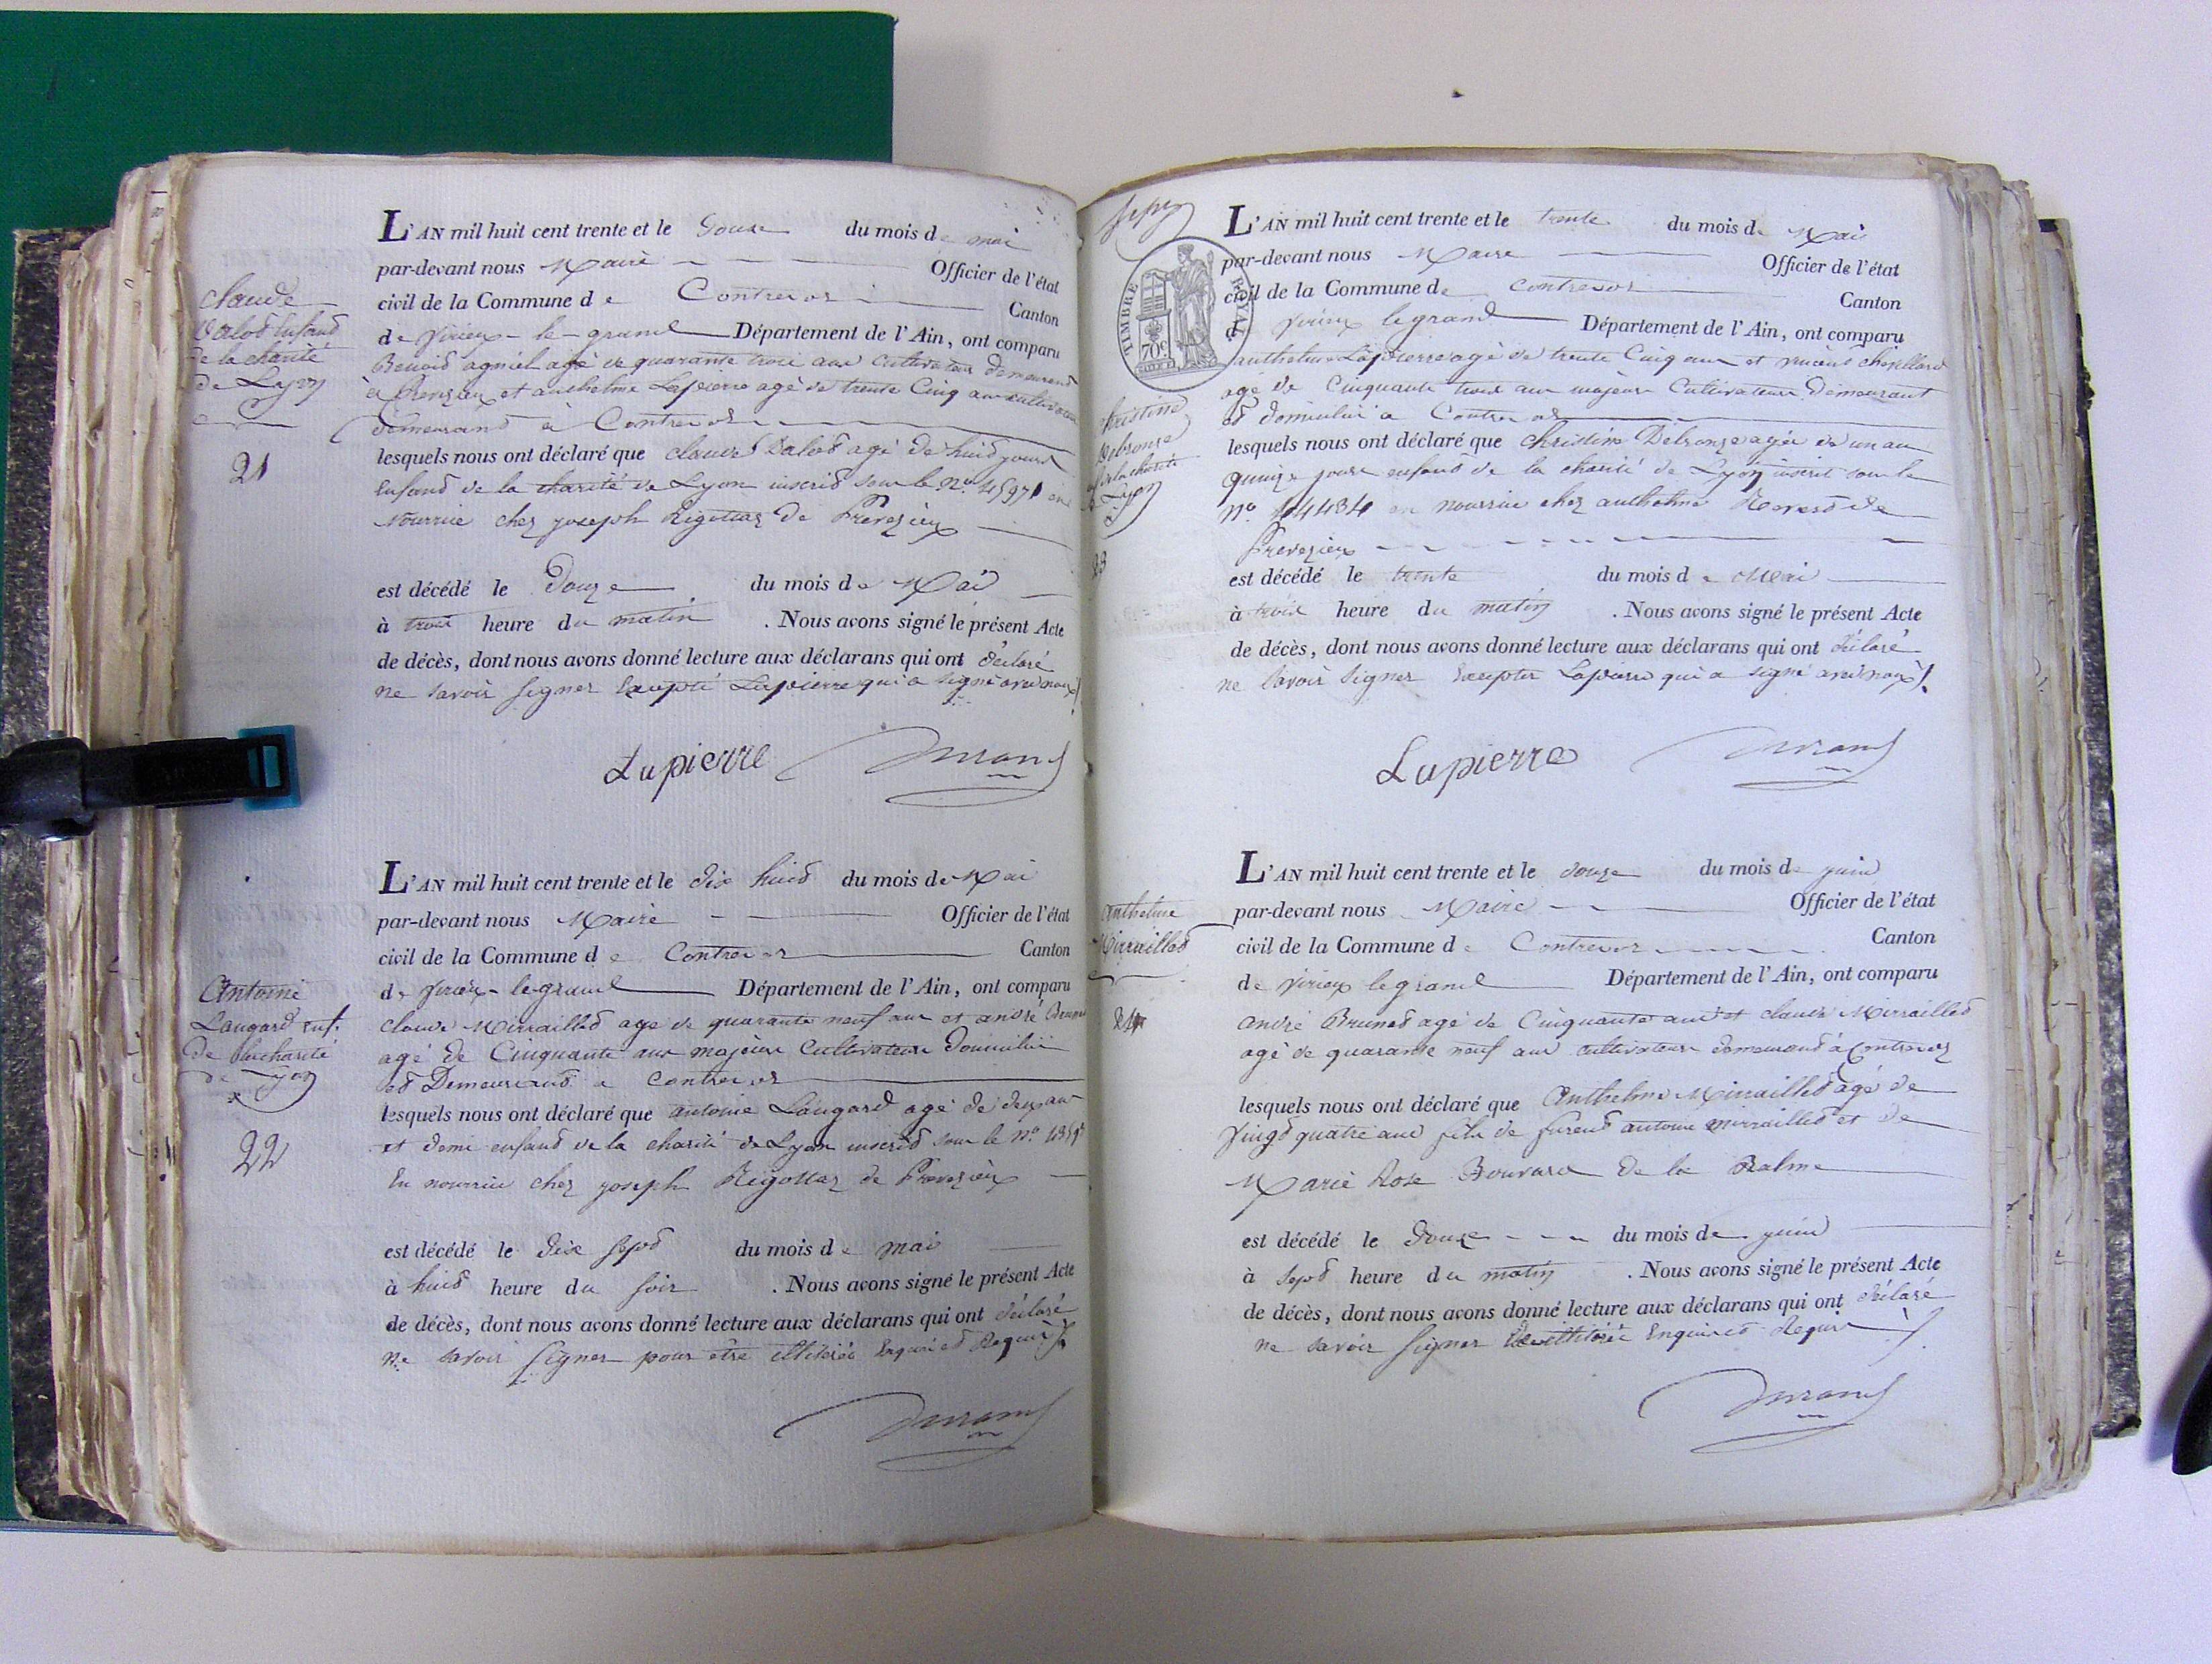 claude
Valod Enfand
de la charité
de Lyon
21
L'AN mil huit cent trente et le Douze du mois de mai
par-devant nous Maire Officier de l'état
civil de la Commune de Contrevoz Canton
de Virieux-le-grand Département de l'Ain, ont comparu
Benoid agniel agé de quarante trois ans Cultivateur demeurand
à Prevezieux et anthelme Lapierre agé de trente Cinq ans cultivateur
demeurand à Contrevoz
lesquels nous ont déclaré que claude Valod agé de huid jours
Enfand de la charité de Lyon inscrid sous le No. 45971 en
Nourrice chez joseph Rigottaz de Prevezieux
est décédé le Douze du mois de Mai
à trois heure du matin . Nous avons signé le présent Acte
de décès, dont nous avons donné lecture aux déclarans qui ont déclaré
ne savoir signer Excepté Lapierre qui a signé avec nous
Lapierre Durand
Antoine
Laugard enf.
De la charité
de Lyon
22
L'AN mil huit cent trente et le dix huid du mois de Mai
par-devant nous Maire Officier de l'état
civil de la Commune de Contrevoz Canton
de Virieux-le-grand Département de l'Ain, ont comparu
claude Mirraillod age de quarante neuf ans et andré Brunod
agé de Cinquante ans majeurs Cultivateurs Domicilié
et Demeurand a Contrevoz
lesquels nous ont déclaré que antoine Laugard agé de deux ans
et demi enfand de la charité de Lyon inscrid sous le No.
En nourrice chez joseph Rigottaz de Prevezieux
est décédé le dix sepd du mois de mai
à huid heure du soir . Nous avons signé le présent Acte
de décès, dont nous avons donné lecture aux déclarans qui ont déclaré
ne savoir signer pour être illitérés Enquis et Requis
Durand
TIMBRE ROYAL
70c
christine
Delronze
de la charité
de Lyon
23
L'AN mil huit cent trente et le trente du mois de Mai
par-devant nous Maire Officier de l'état
civil de la Commune de Contrevoz Canton
de Virieux le grand Département de l'Ain, ont comparu
anthelme Lapierre agé de trente Cinq ans et vincent
agé de Cinquante trois ans majeurs Cultivateurs Demeurant
et domicilié a Contrevoz
lesquels nous ont déclaré que christine Delronze agée de un an
quinze jours enfand de la charité de Lyon inscrit sous le
No. 44434 en nourrice chez anthelme de
Prevezieux
est décédé le trente du mois de Mai
à trois heure du matin . Nous avons signé le présent Acte
de décès, dont nous avons donné lecture aux déclarans qui ont déclaré
ne savoir signer Excepter Lapierre qui a signé avec nous
Lapierre Durand
Anthelme
Mirraillod
24
L'AN mil huit cent trente et le douze du mois de juin
par-devant nous Maire Officier de l'état
civil de la Commune de Contrevoz Canton
de Virieux le grand Département de l'Ain, ont comparu
andré Brunod agé de Cinquante ans et claude Mirraillod
agé de quarante neuf ans cultivateurs demeurand à Contrevoz
lesquels nous ont déclaré que Anthelme Mirraillod agé de
Vingd quatre ans fils de antoine Mirraillod et de
Marie Rose Bouvard de la Balme
est décédé le Douze du mois de juin
à sepd heure du matin . Nous avons signé le présent Acte
de décès, dont nous avons donné lecture aux déclarans qui ont déclaré
ne savoir signer Enquis et Requis
Durand